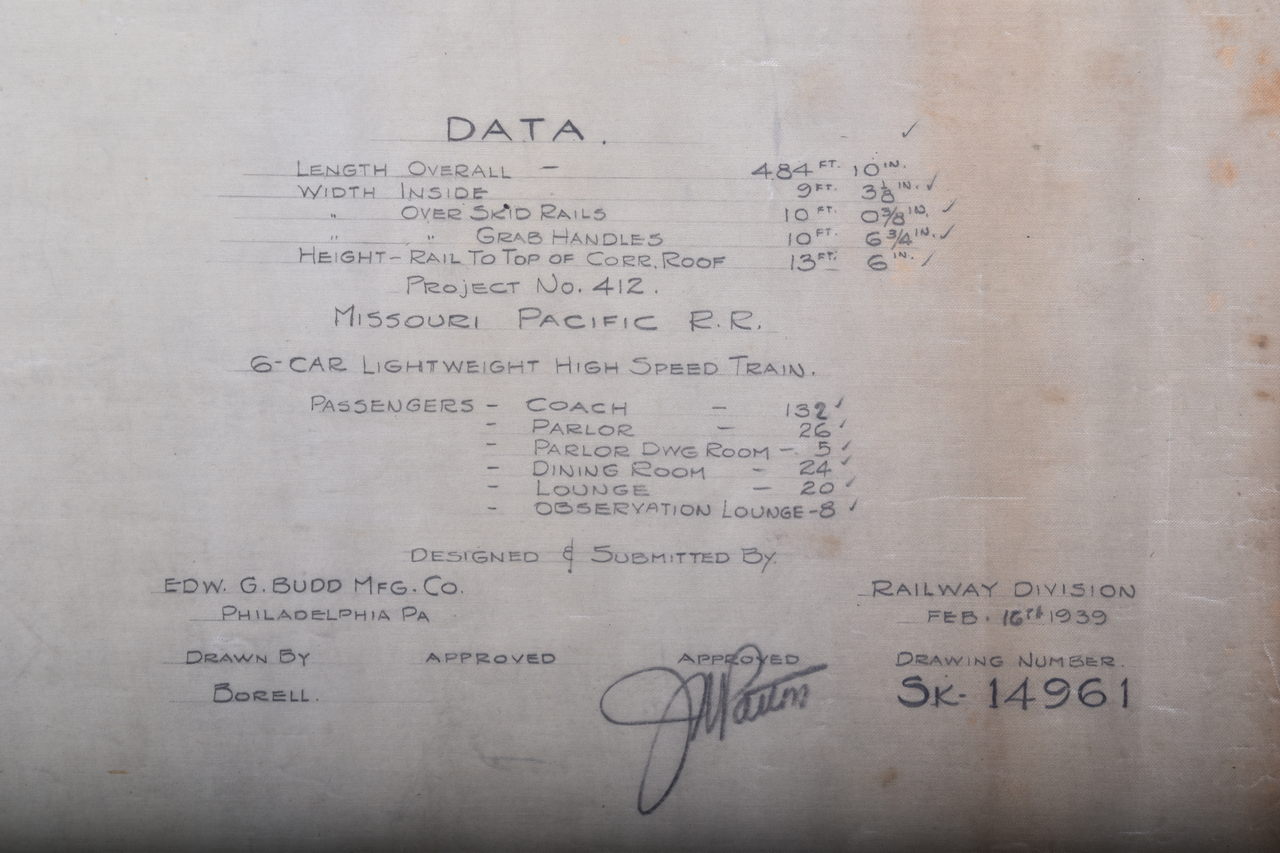 DATA.
LENGTH OVERALL — 484 FT. 10 IN.
WIDTH INSIDE 9 FT. 3 1/8 IN. ✓
" OVER SKID RAILS 10 FT. 0 3/8 IN. ✓
" " GRAB HANDLES 10 FT. 6 3/4 IN. ✓
HEIGHT - RAIL TO TOP OF CORR. ROOF 13 FT. 6 IN. ✓
PROJECT NO. 412.
MISSOURI PACIFIC R.R.
6-CAR LIGHTWEIGHT HIGH SPEED TRAIN.
PASSENGERS - COACH - 132 ✓
- PARLOR - 26 ✓
- PARLOR DWG ROOM - 5 ✓
- DINING ROOM - 24 ✓
- LOUNGE - 20 ✓
- OBSERVATION LOUNGE - 8 ✓
DESIGNED & SUBMITTED BY
EDW. G. BUDD MFG. CO. RAILWAY DIVISION
PHILADELPHIA PA FEB. 16TH 1939
DRAWN BY APPROVED APPROVED DRAWING NUMBER.
BORELL. SK-14961